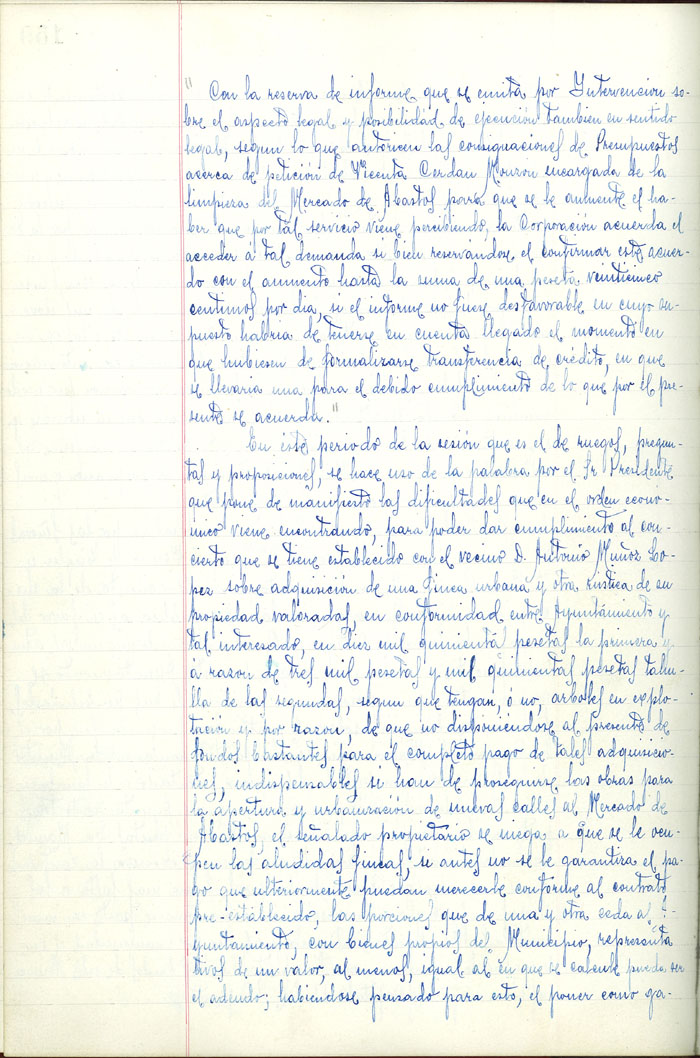 " Con la reserva de informe que se emita por Intervencion so-
bre el aspecto legal y posibilidad de ejecución tambien en sentido
legal, segun lo que autoricen las consignaciones de Presupuestos
acerca de petición de Vicenta Cerdan Monzon encargada de la
limpieza del Mercado de Abastos para que se le aumente el ha-
ber que por tal servicio viene percibiendo, la Corporación acuerda el
acceder á tal demanda si bien reservándose el confirmar este acuer-
do con el aumento hasta la suma de una peseta veinticinco
centimos por dia, si el informe no fuese desfavorable en cuyo su-
puesto habria de tenerse en cuenta llegado el momento en
que hubiesen de formalizarse transferencia de crédito, en que
se llevaria una para el debido cumplimiento de lo que por el pre-
sente se acuerda."
En este periodo de la sesión que es el de ruegos, pregun-
tas y proposiciones, se hace uso de la palabra por el Sr. Presidente
que pone de manifiesto las dificultades que en el orden econo-
mico viene encontrando, para poder dar cumplimiento al con-
cierto que se tiene establecido con el vecino D. Antonio Muñoz Lo-
pez sobre adquisición de una finca urbana y otra rústica de su
propiedad valoradas, en conformidad entre Ayuntamiento y
tal interesado, en diez mil quinientas pesetas la primera y
á razon de tres mil pesetas y mil quinientas pesetas tahu-
lla de las segundas, segun que tengan, ó no, arboles en explo-
tación y por razon, de que no disponiendose al presente de
fondos bastantes para el completo pago de tales adquisicio-
nes, indispensables si han de proseguirse las obras para
la apertura y urbanización de nuevas calles al Mercado de
Abastos, el señalado propietario se niega a que se le ocu-
pen las aludidas fincas, si antes no se le garantiza el pa-
go que ulteriormente puedan merecerle conforme al contrato
pre-establecido, las porciones que de una y otra ceda al A-
yuntamiento, con bienes propios del Municipio, representa
tivos de un valor, al menos, igual al en que se calcule pueda ser
el adeudo; habiendose pensado para esto, el poner como ga-